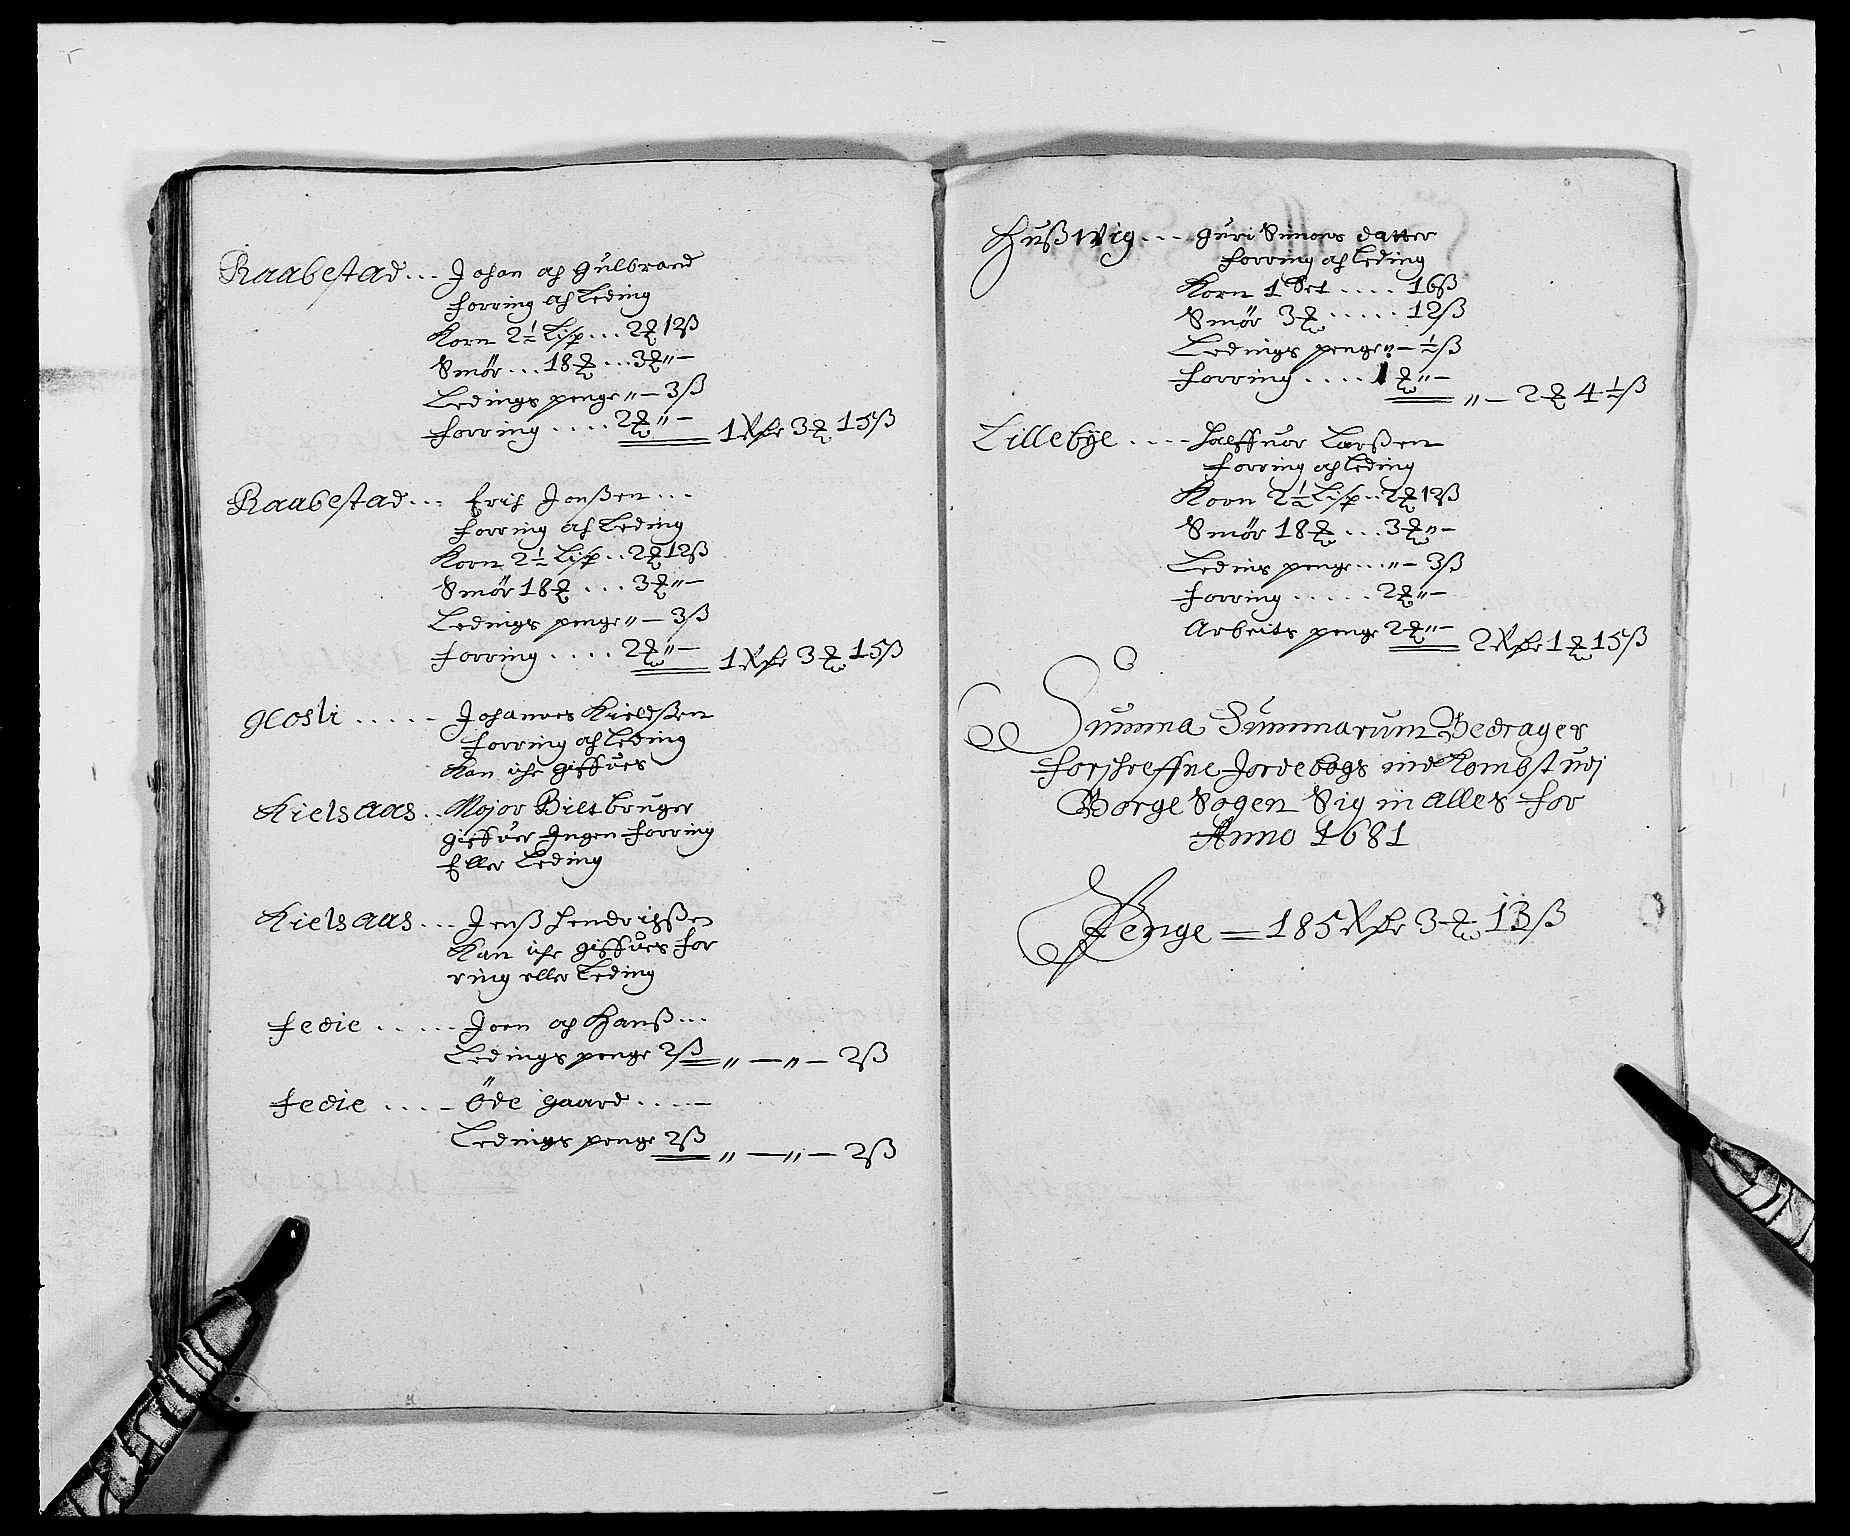 Raabestad... Johan og Gulbrand
Forring og Leding
Korn 2½ Lisp... 2 ℔ 12ß
Smör... 18 ℔... 3 ℔ „ —
Ledings penge „ — 3ß
Forring.... 2 ℔ „ — 1 Rdr 3 ℔ 15ß
Raabestad... Erich Jonßen...
Forring og Leding
Korn 2½ Lisp.. 2 ℔ 12ß
Smör 18 ℔... 3 ℔ „ —
Ledings penge „ — 3ß
Forring.... 2 ℔ „ — 1 Rdr 3 ℔ 15ß
Glosli..... Johannes Kieldßen
Forring og Leding
Kan iche giffues
Kielsaas.. Major Bilt bruger
giffuer Ingen Forring
Eller Leding
Kielsaas... Jenß Hendrichßen
Kan iche giffues for
ring eller Leding
Fedie..... Joen og Hanß...
Ledings penge 2ß „ — „ — 2ß
Fedie.... Öde gaard....
Ledings penge 2ß „ — „ — 2ß
Hußwig... Guri Simons datter
Forring og Leding
Korn 1 Set.... 16ß
Smör 3 ℔..... 12ß
Ledings penge „ — ½ß
Forring.... 1 ℔ „ — „ — 2 ℔ 4½ß
Lillebÿe.... Halffuor Larßen
Forring og Leding
Korn 2½ Lisp.. 2 ℔ 12ß
Smör 18 ℔... 3 ℔ „ —
Ledins penge... „ — 3ß
Forring..... 2 ℔ „ —
Arbeits penge 2 ℔ „ — 2 Rdr 1 ℔ 15ß
Summa Summarum Bedrager
forschreffne Jordebogs indkombst udj
Borge Sogen Sig in alles for
Anno 1681
Penge = 185 Rdr 3 ℔ 13ß